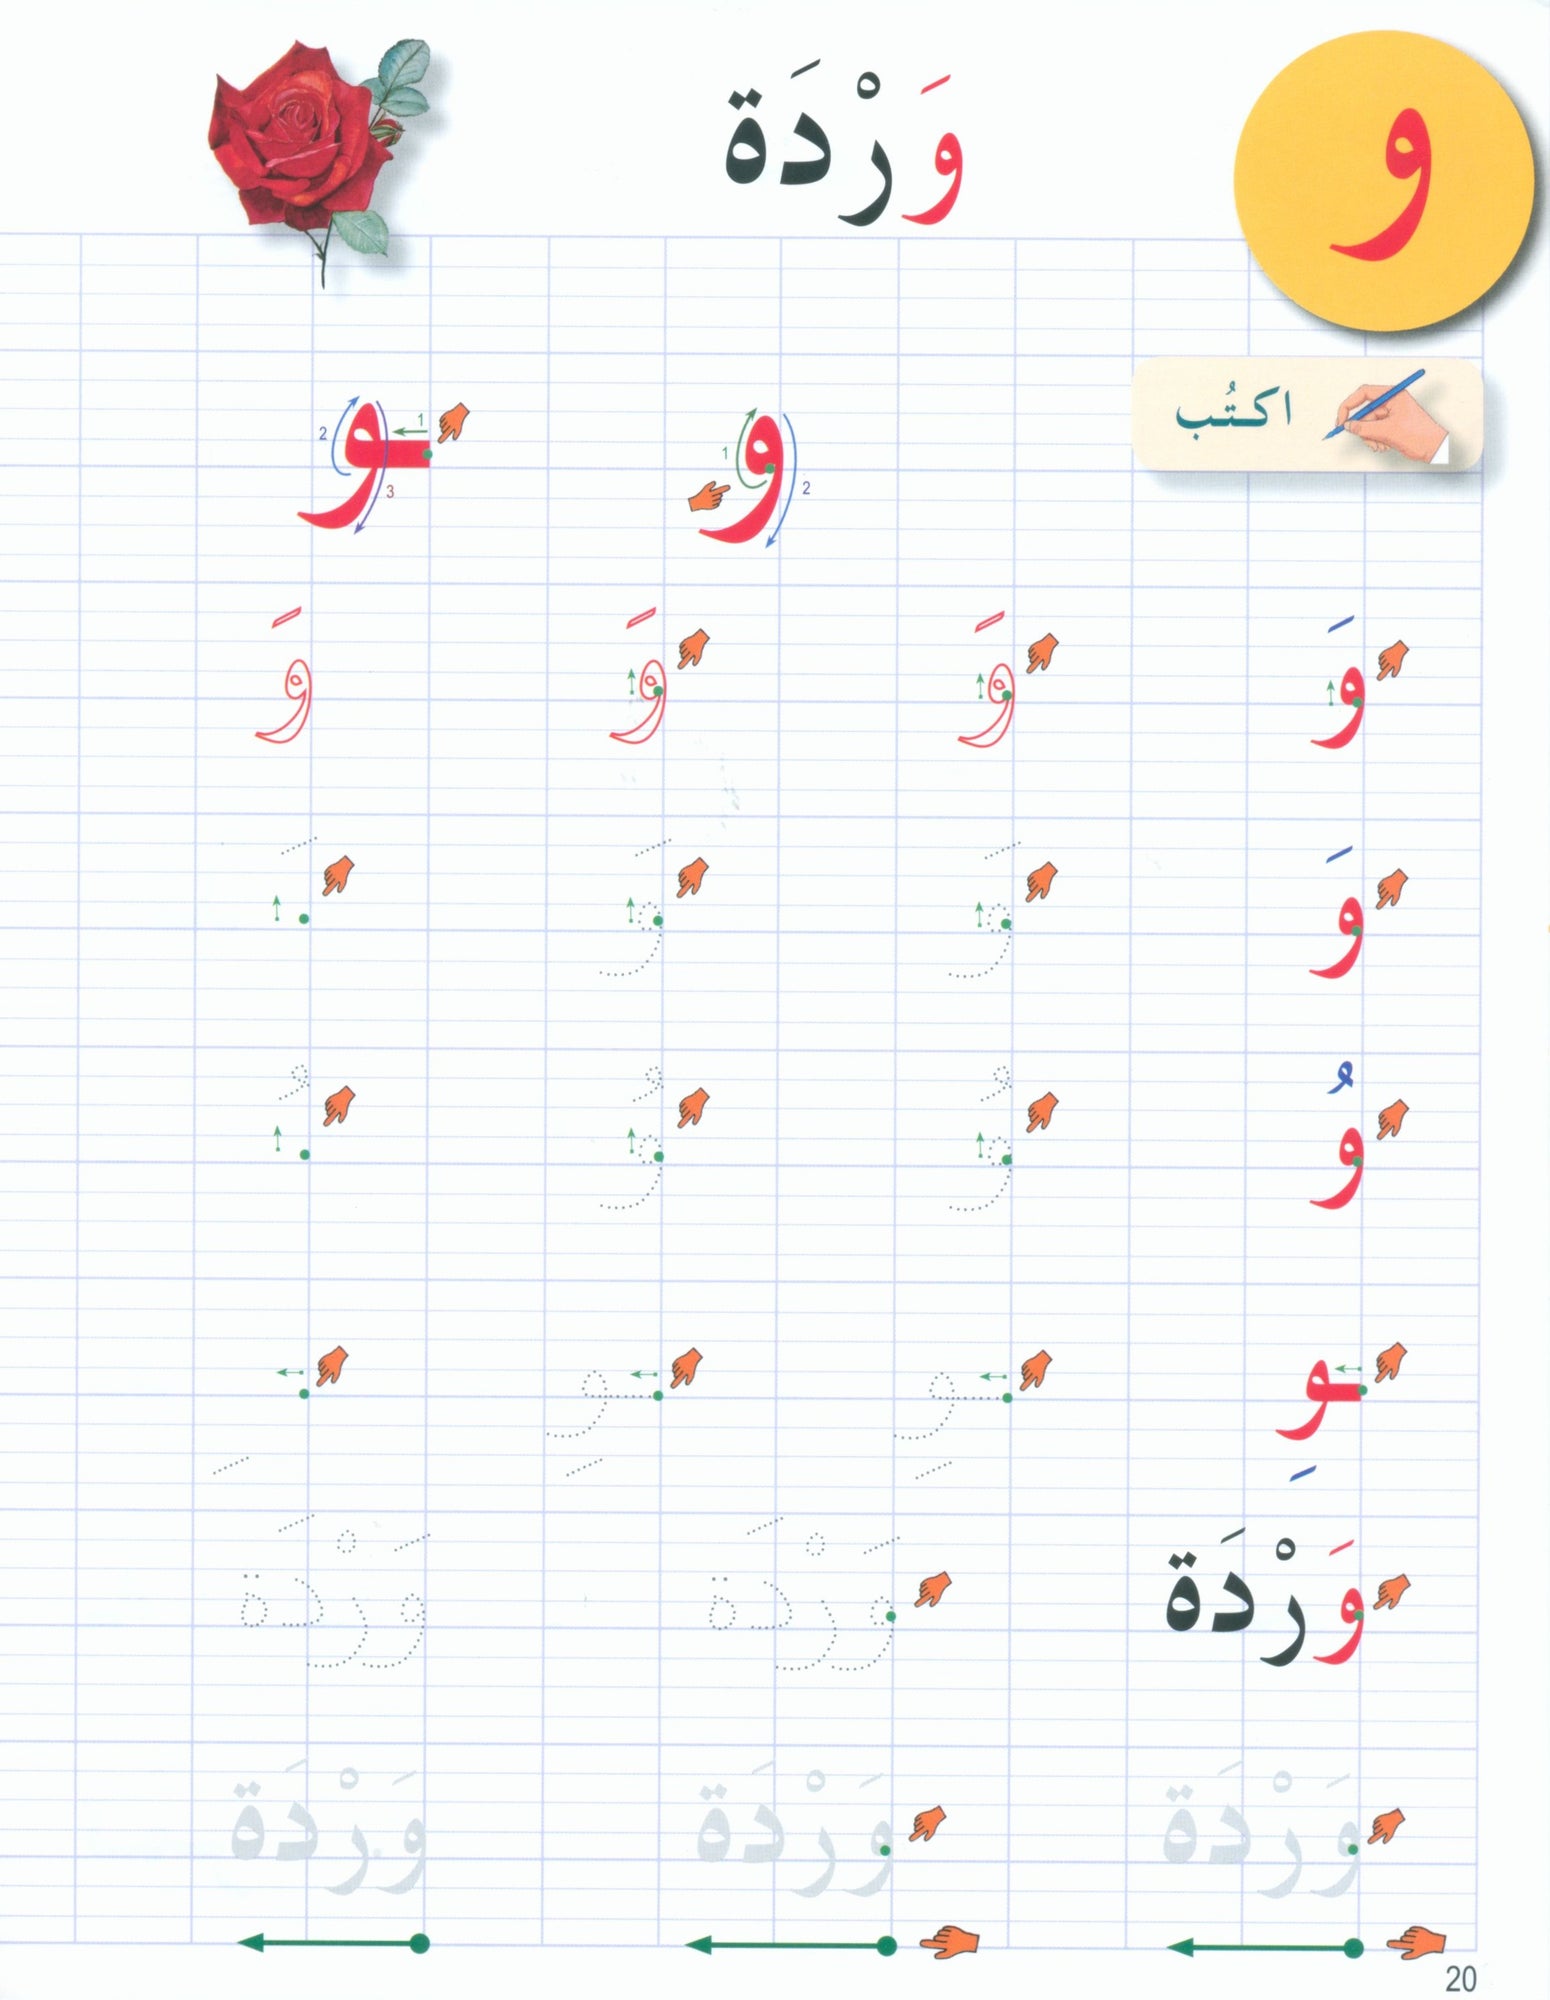 و وَرْدَة
اكتُب
1 2 و 1 2 3 ـو
وَ وَ وَ وَ
وَ وَ وَ
وُ وُ وُ
ـوِ ـوِ ـوِ
وَرْدَة وَرْدَة وَرْدَة
وَرْدَة وَرْدَة وَرْدَة
20